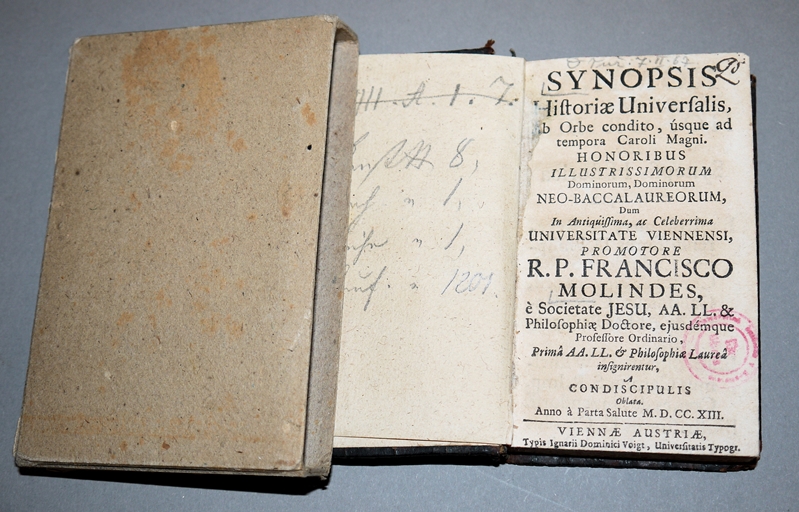 IIII. A. 1. 7.
8,
1,
1,
1201
7. II. 67
SYNOPSIS
Hiſtoriæ Univerſalis,
b Orbe condito, úsque ad
tempora Caroli Magni.
HONORIBUS
ILLUSTRISSIMORUM
Dominorum, Dominorum
NEO-BACCALAUREORUM,
Dum
In Antiquiſſima, ac Celeberrima
UNIVERSITATE VIENNENSI,
PROMOTORE
R. P. FRANCISCO
MOLINDES,
è Societate JESU, AA. LL. &
Philoſophiæ Doctore, ejusdémque
Profeſſore Ordinario,
Primâ AA. LL. & Philoſophiæ Laureâ
inſignirentur,
A
CONDISCIPULIS
Oblata.
Anno à Parta Salute M. D. CC. XIII.
VIENNÆ AUSTRIÆ,
Typis Ignatii Dominici Voigt, Univerſitatis Typogr.